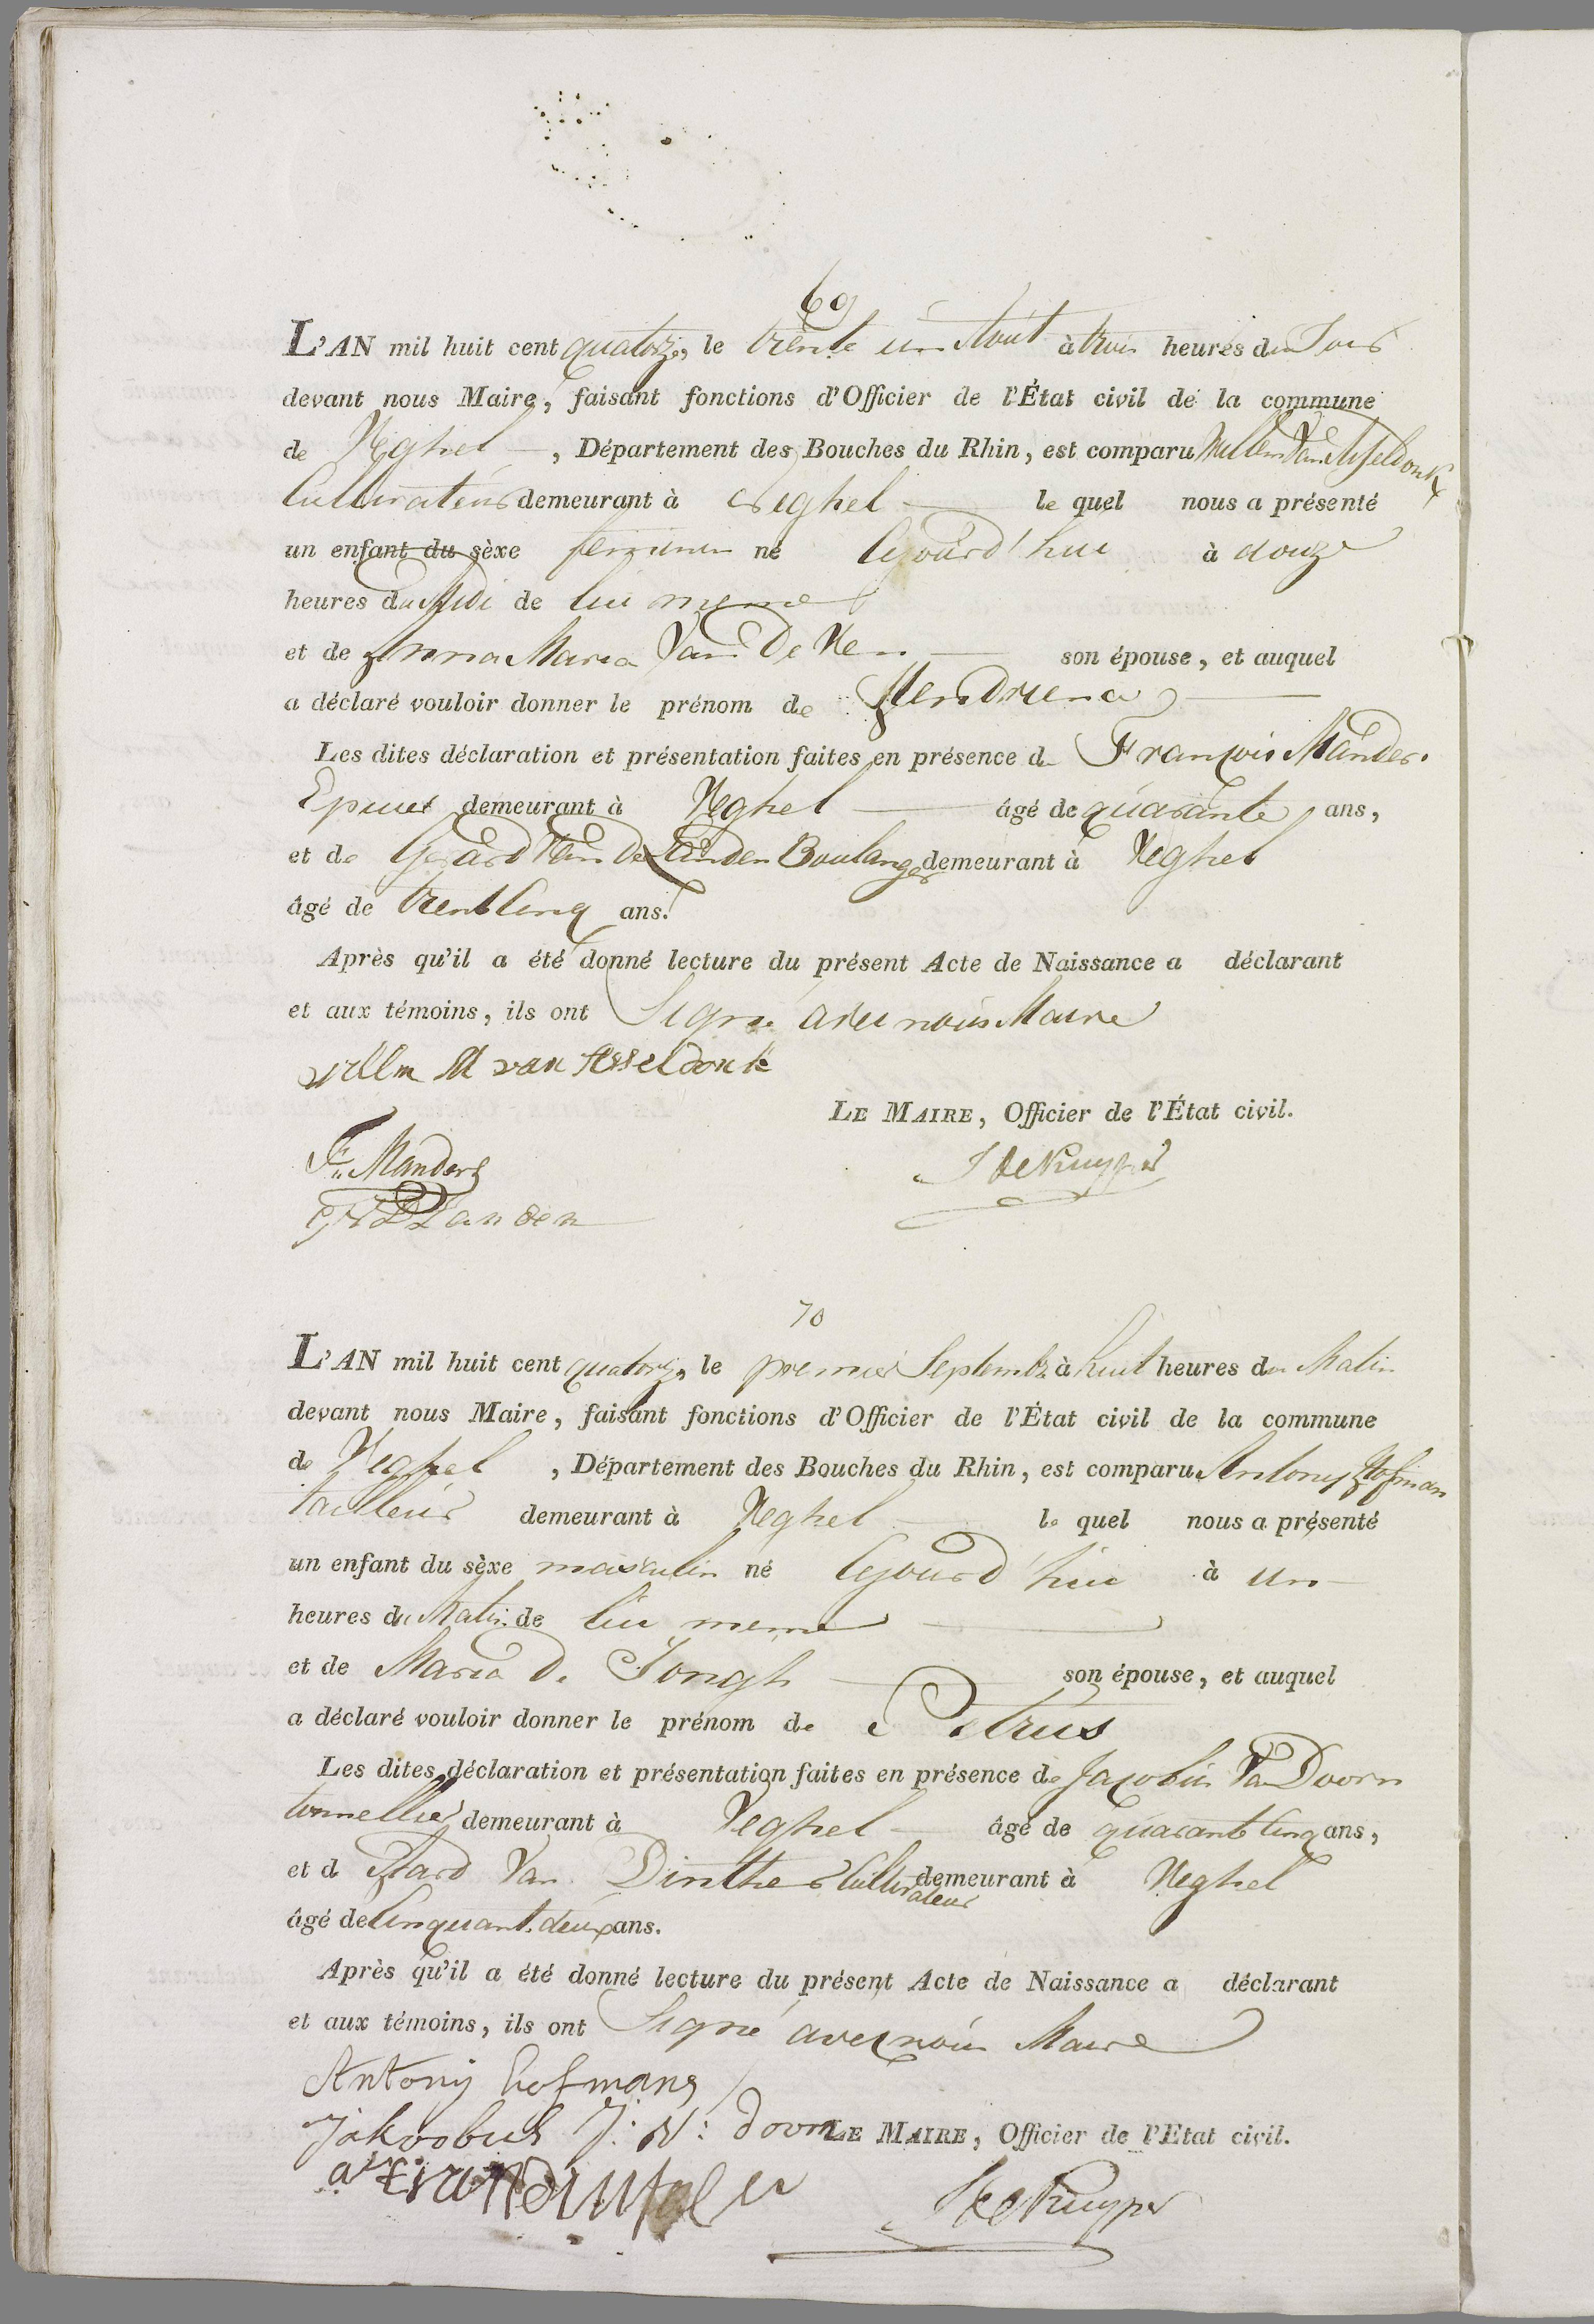 69
L'AN mil huit cent quatorze, le trente un Aout à trois heures du Soir
devant nous Maire, faisant fonctions d'Officier de l'État civil de la commune
de Veghel, Département des Bouches du Rhin, est comparu Willem Van Asseldonk
Cultivateur demeurant à Veghel le quel nous a présenté
un enfant du sèxe feminin né Cejourd'hui à douze
heures du Midi de lui meme
et de Anna Maria Van De Ven son épouse, et auquel
a déclaré vouloir donner le prénom de Hendriena
Les dites déclaration et présentation faites en présence de François Manders
Epicier demeurant à Veghel âgé de quarante ans,
et de Gerard Van der Linden Boulanger demeurant à Veghel
âgé de trent Cinq ans.
Après qu'il a été donné lecture du présent Acte de Naissance a déclarant
et aux témoins, ils ont Signé avec nous Maire
Willm M van Asseldonk
LE MAIRE, Officier de l'État civil.
F. Manders
J de Kuyper
70
L'AN mil huit cent quatorze, le premier Septembre à huit heures du Matin
devant nous Maire, faisant fonctions d'Officier de l'État civil de la commune
de Veghel, Département des Bouches du Rhin, est comparu Antony Hofman
tailleur demeurant à Veghel le quel nous a présenté
un enfant du sèxe masculin né Cejourd'hui à un
heures du Matin de lui meme
et de Maria de Jongh son épouse, et auquel
a déclaré vouloir donner le prénom de Petrus
Les dites déclaration et présentation faites en présence de Jacobus Van Doorn
tonnellier demeurant à Veghel âgé de quarante Cinq ans,
et d Van Dinther Cultivateur demeurant à Veghel
âgé de Cinquant deux ans.
Après qu'il a été donné lecture du présent Acte de Naissance a déclarant
et aux témoins, ils ont Signé avec nous Maire
Antony hofmans
Jakoobus J: V: doorn
LE MAIRE, Officier de l'Etat civil.
J de Kuyper